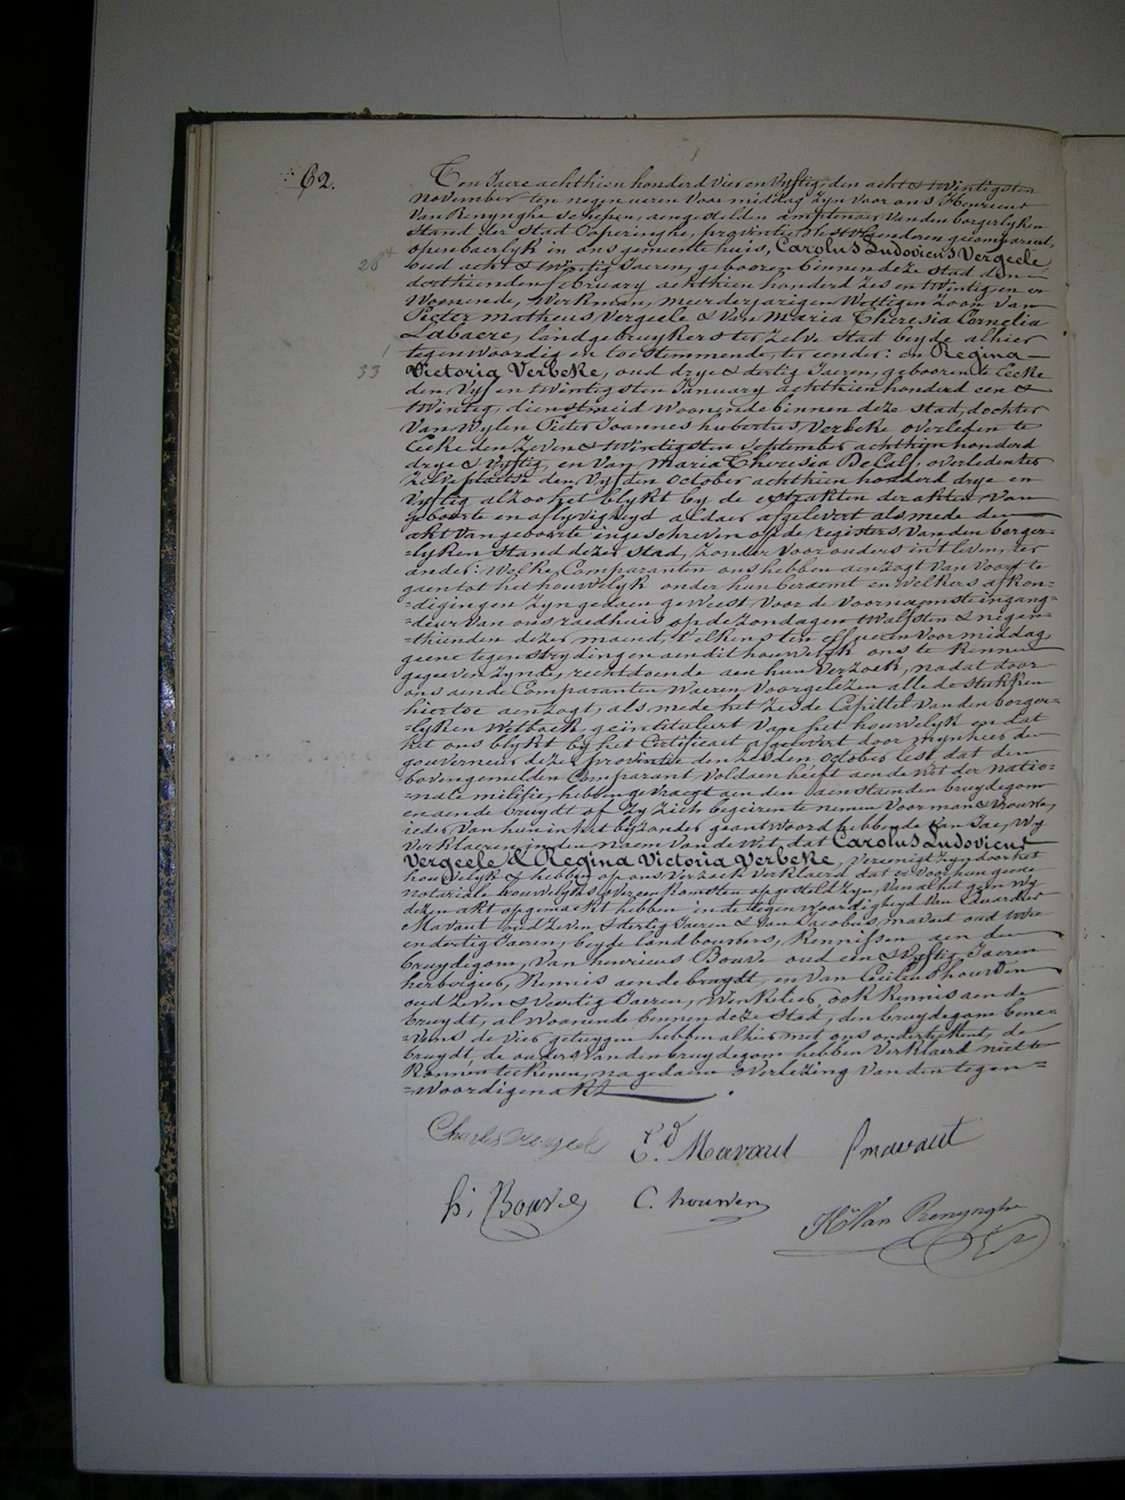 62.
Ten Jaere achthien honderd vier en Vyftig, den acht & twintigsten
November ten negen ueren voor middag zyn voor ons Henricus
Van Renynghe schepen, aengestelden amptenaer van den borgerlyken
stand der stad Poperinghe, provintie Westvlaenderen gecompareert,
openbaerlyk in ons gemeente huis, Carolus Ludovicus Vergeele
28
oud acht & twintig Jaeren, gebooren binnen deze stad den
derthienden february achthien honderd zes en twintig, en er
Woonende, Werkman, meerderjarigen Wettigen zoon van
Pieter Matheus Vergeele & van Maria Theresia Cornelia
Labaere, landgebruykers ter zelve stad beyde alhier
tegenwoordig en toestemmende, ter eender: en Regina
33
Victoria Verbeke, oud drye & dertig Jaeren, gebooren te Eecke
den Vyf en twintigsten January achthien honderd een &
twintig, dienstmeid woonende binnen deze stad, dochter
Van Wylen Pieter Joannes hubertus Verbeke overleden te
Eecke den zeven & twintigsten September achthien honderd
drye & Vyftig, en van Maria Theresia DeCalf, overleden ter
zelve plaetse den Vyfden October achthien honderd drye en
Vyftig alzoo het blykt by de extrakten der akten van
geboorte en aflyvigheyd aldaer afgelevert als mede den
akt van geboorte ingeschreven op de registers van den borger=
=lyken stand dezer stad, zonder voorouders in't leven, ter
ander: Welke Comparanten ons hebben aenzogt van voort te
gaen tot het houwelyk onder hun beraemt en welkers afkon=
=digingen zyn gedaen geweest voor de voornaemste ingang=
=deur van ons raedhuis op de zondagen twalfsten & negen=
=thienden dezer maend, t'elkens ten elf ueren voor middag,
geene tegenstrydingen aen dit houwelyk ons te kennen
gegeven zynde, rechtdoende aen hun verzoek, nadat door
ons aen de Comparanten waeren voorgelezen alle de stukken
hiertoe aenzogt, als mede het zesde Capittel van den borger=
=lyken Wetboek, geïntituleert van het houwelyk en dat
het ons blykt by het Certificaet afgelevert door mynheer den
gouverneur dezer provintie den zesden october lest, dat den
bovengemelden Comparant voldaen heeft aen de wet der natio=
=nale militie, hebben gevraegt aen den aenstaenden bruydegom
en aen de bruydt of zy zich begeiren te nemen voor man & vrouw,
ieder van hun in het byzonder geantwoord hebbende van Jae, Wy
verklaeren in den naem van de Wet, dat Carolus Ludovicus
Vergeele & Regina Victoria Verbeke, vereenigt zyn door het
houwelyk & hebben op ons verzoek verklaerd dat er voor hun geene
notariale houwelyks overeenkomsten opgesteld zyn, van al het geen wy
dezen akt opgemaekt hebben in de tegenwoordigheyd van Eduardus
Mavaut oud zeven & dertig Jaeren & Van Jacobus mavaut oud twee
en dertig Jaeren, beyde landbouwers, Kennissen aen den
bruydegom, van henricus Bouve oud een & vyftig Jaeren
herbergier, Kennis aen de bruydt, en van Cecilius houwen
oud zeven & veertig Jaeren, Winkelier, ook Kennis aen de
bruydt, al woonende binnen deze stad, den bruydegom bene=
=vens de vier getuygen hebben alhier met ons onderteekent, de
bruydt, de ouders van den bruydegom hebben verklaerd niet te
Konnen teekenen, na gedaene overlezing van den tegen=
=woordigen akt.
Charles Vergeele Ed. Mavaut J mavaut
h; Bouve C. houwen
H. Van Renynghe